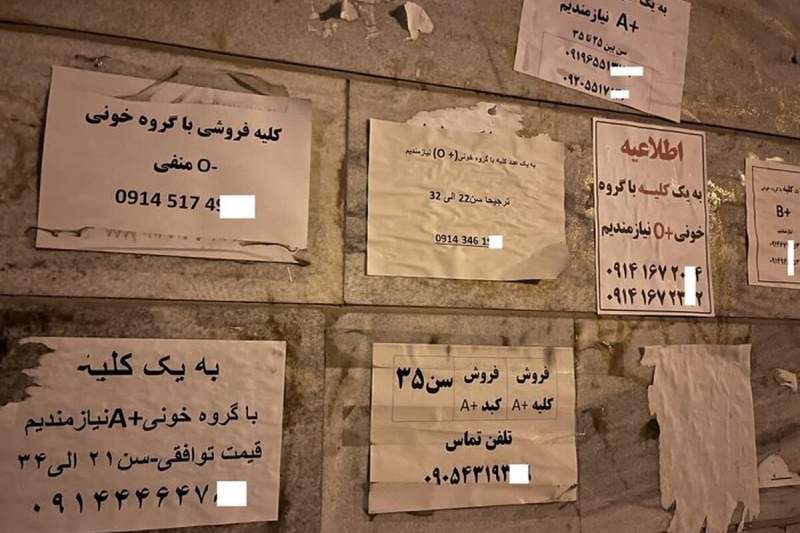 به یک
A+ نیازمندیم
سن بین ۲۵ تا ۳۵
۰۹۱۹۶۵۵۱۳
۰۹۲۰۵۵۱۷
کلیه فروشی با گروه خونی
O- منفی
0914 517 49
به یک عدد کلیه با گروه خونی(O +) نیازمندیم
ترجیحا سن22 الی 32
0914 346 1
اطلاعیه
به یک کلیه با گروه
خونی +O نیازمندیم
۰۹۱۴ ۱۶۷ ۲
۰۹۱۴ ۱۶۷ ۲۳
کلیه با گروه خونی
B+
نیازمندیم
به یک کلیه
با گروه خونی+A نیازمندیم
قیمت توافقی-سن ۲۱ الی ۳۴
۰۹۱۴۴۴۶۴۷
فروش کلیه +A
فروش کبد +A
سن ۳۵
تلفن تماس
۰۹۰۵۴۳۱۹۳